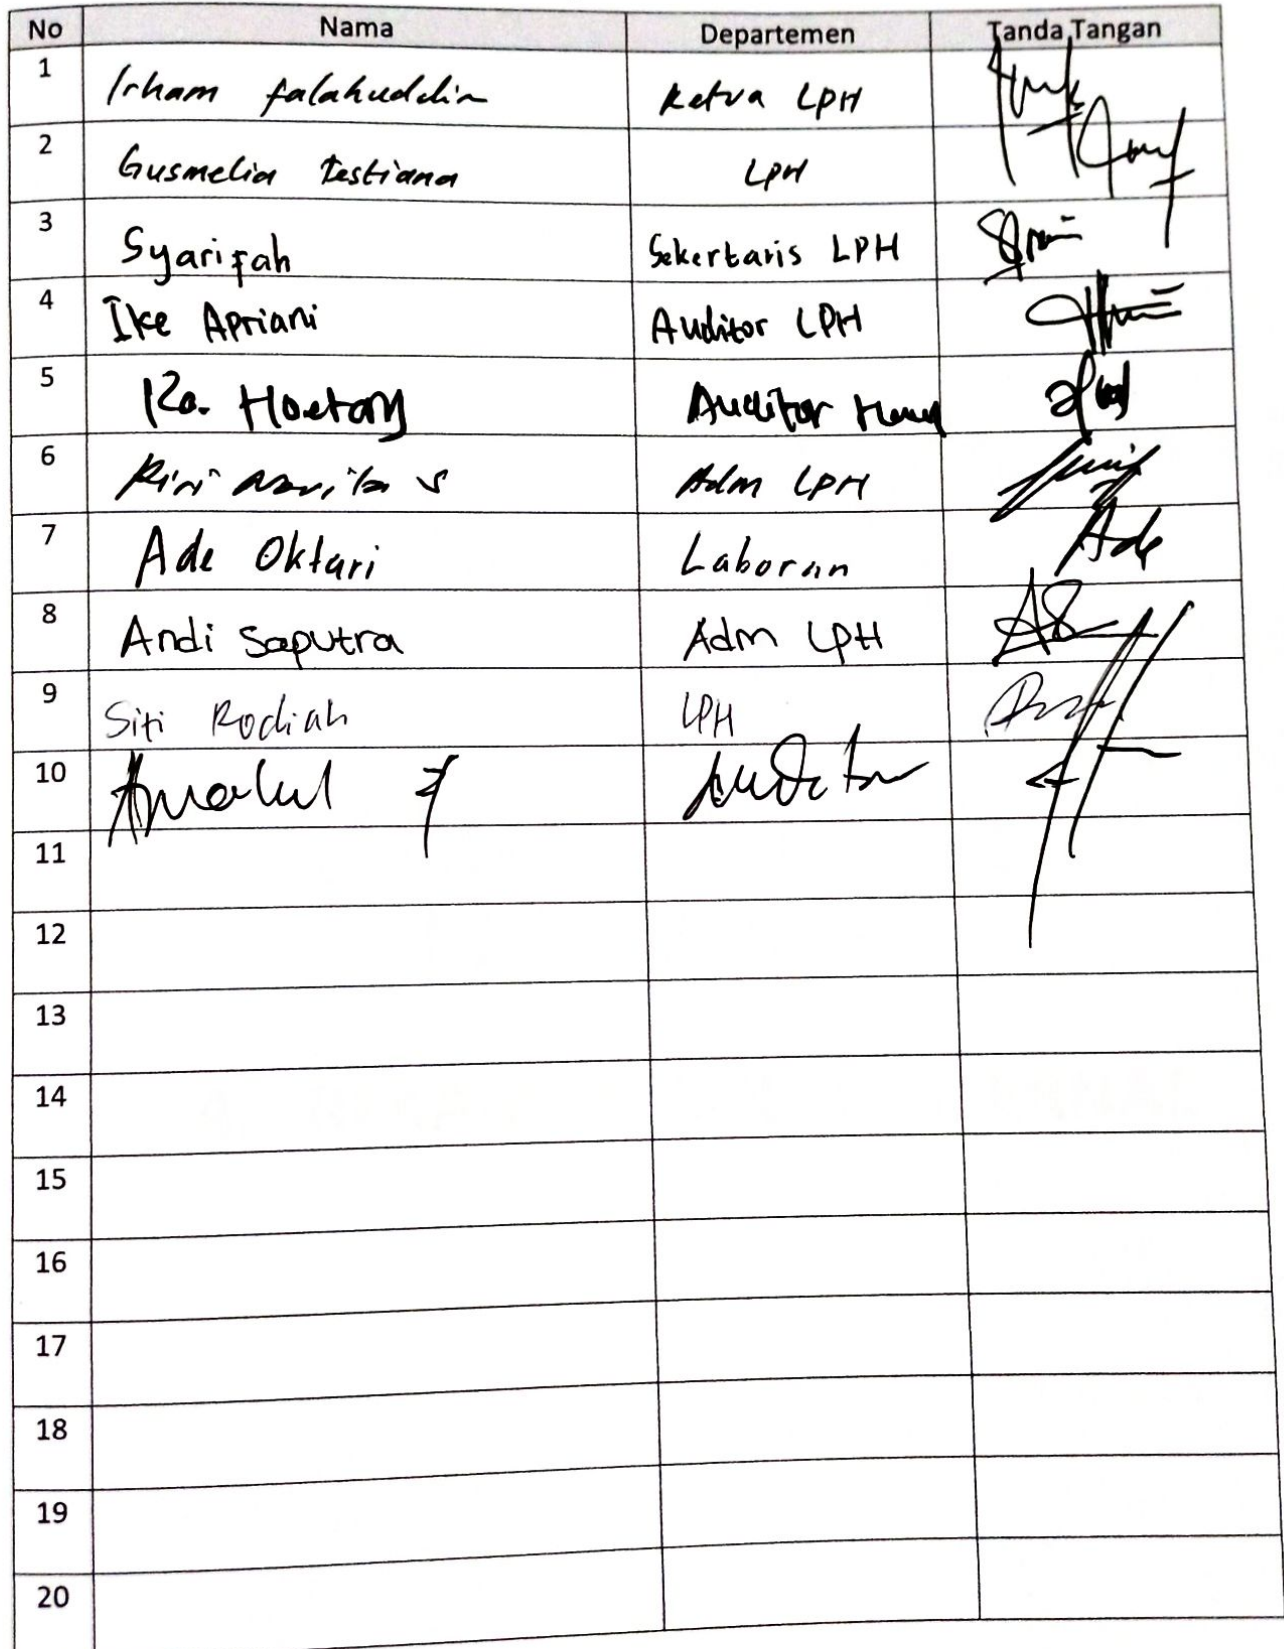 No Nama Departemen Tanda Tangan
1 Irham falahuddin Ketua LPH
2 Gusmelia Testiana LPH
3 Syarifah Sekertaris LPH
4 Ike Apriani Auditor LPH
5 Auditor
6 Riri S Adm LPH
7 Ade Oktari Laboran Ade
8 Andi Saputra Adm LPH
9 Siti Rodiah LPH
10 Auditor
11
12
13
14
15
16
17
18
19
20